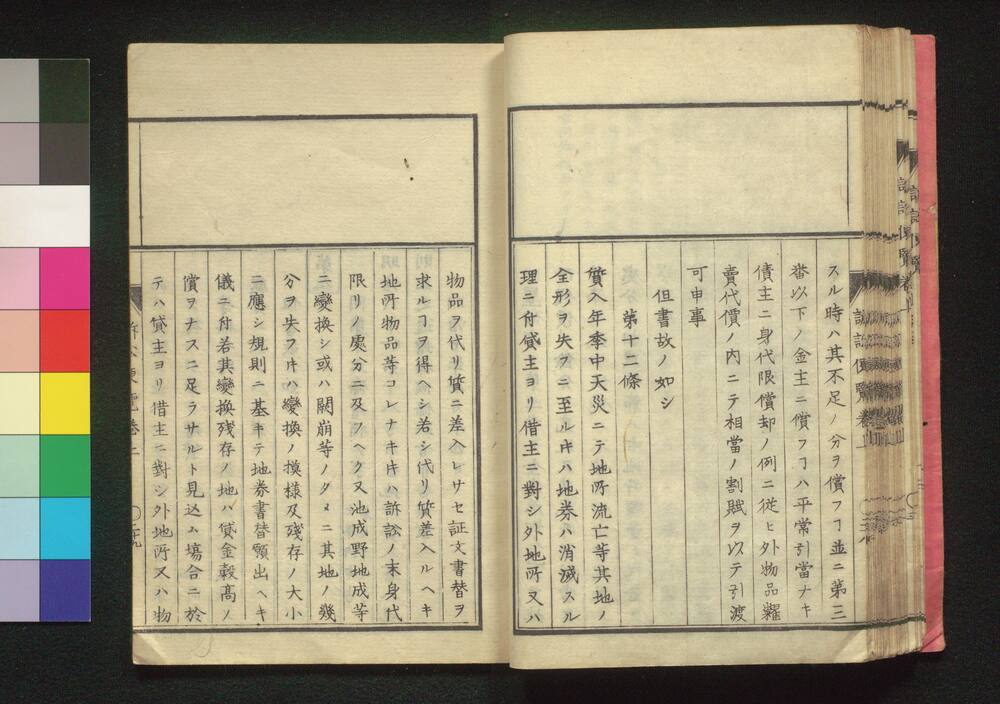 スル時ハ其不足ノ分ヲ償フヿ並ニ第三
番以下ノ金主ニ償フヿハ平常引當ナキ
債主ニ身代限償却ノ例ニ従ヒ外物品糶
賣代價ノ内ニテ相當ノ割賦ヲ以テ引渡
可申事
但書故ノ如シ
第十二條
質入年季中天災ニテ地所流亡等其地ノ
全形ヲ失フニ至ルキハ地券ハ消滅スル
理ニ付貸主ヨリ借主ニ對シ外地所又ハ
物品ヲ代リ質ニ差入レサセ証文書替ヲ
求ルヿヲ得ヘシ若シ代リ質差入ルヘキ
地所物品等コレナキ𪜈ハ訴訟ノ末身代
限リノ處分ニ及フヘク又池成野地成等
ニ變換シ或ハ闕崩等ノタメニ其地ノ幾
分ヲ失フ𪜈ハ變換ノ摸様及殘存ノ大小
ニ應シ規則ニ基キテ地券書替願出ヘキ
儀ニ付若其變換残存ノ地ハ貸金穀髙ノ
償ヲナスニ足ラサルト見込ム塲合ニ於
テハ貸主ヨリ借主ニ對シ外地所又ハ物